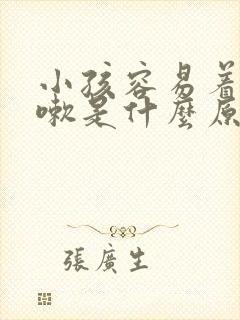 小孩容易着
嗽是什麼原
張廣生